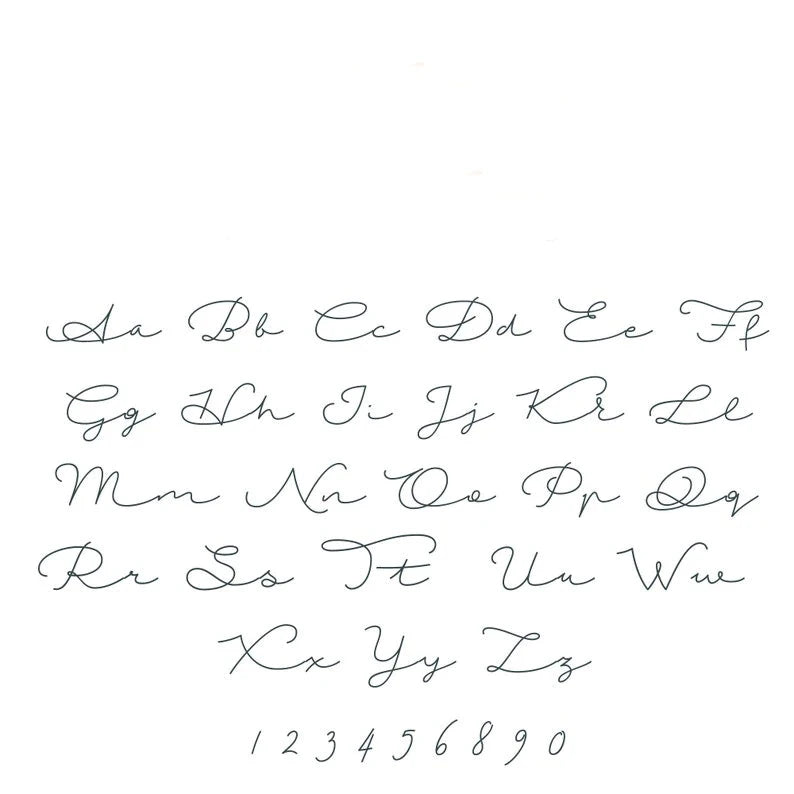 Aa Bb Cc Dd Ee Ff
Gg Hh Ii Jj Kk Ll
Mm Nn Oo Pp Qq
Rr Ss Tt Uu Ww
Xx Yy Zz
1 2 3 4 5 6 8 9 0